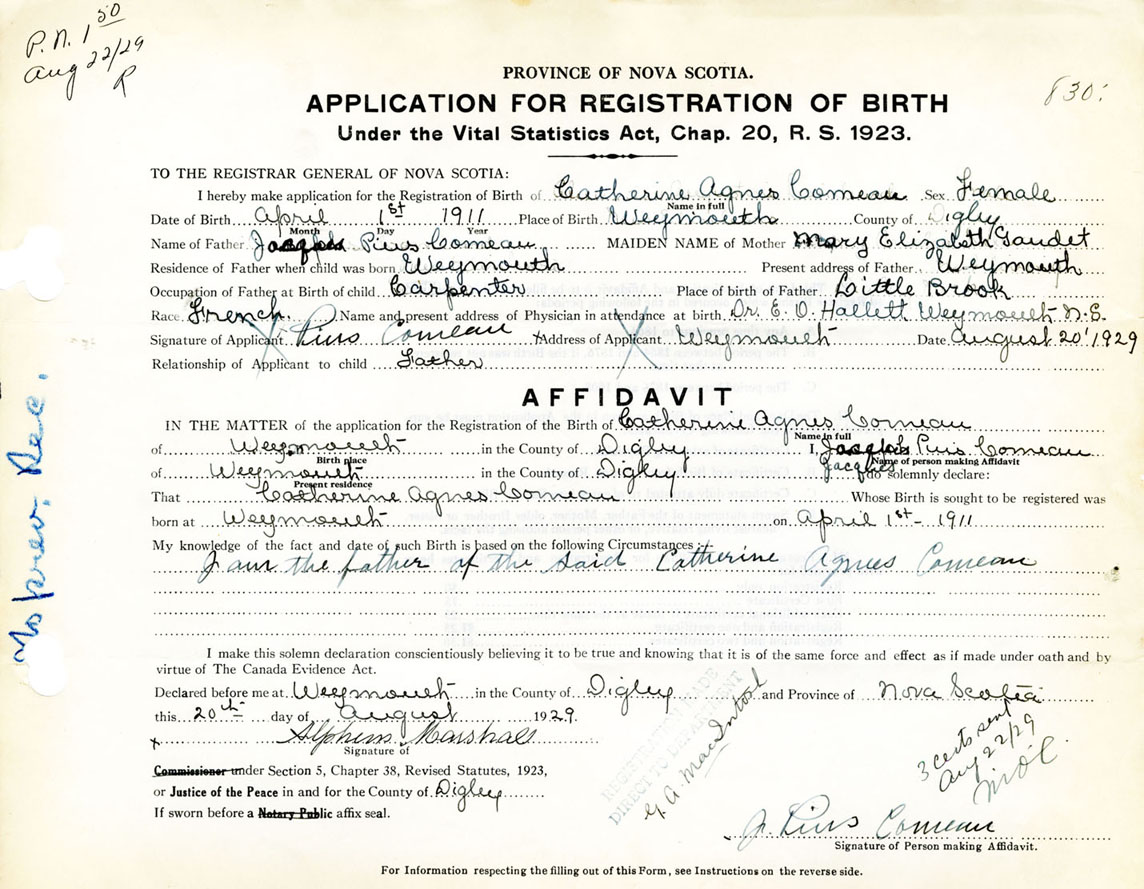 P.N. 1 50
Aug 22/29
R
830
PROVINCE OF NOVA SCOTIA.
APPLICATION FOR REGISTRATION OF BIRTH
Under the Vital Statistics Act, Chap. 20, R. S. 1923.
TO THE REGISTRAR GENERAL OF NOVA SCOTIA:
I hereby make application for the Registration of Birth of Catherine Agnes Comeau Sex Female
Name in full
Date of Birth April 1st 1911 Place of Birth Weymouth County of Digby
Month Day Year
Name of Father Pius Comeau MAIDEN NAME of Mother Mary Elizabeth Gaudet
Residence of Father when child was born Weymouth Present address of Father Weymouth
Occupation of Father at Birth of child Carpenter Place of birth of Father Little Brook
Race French. Name and present address of Physician in attendance at birth Dr. E. O. Hallett Weymouth N.S.
Signature of Applicant Pius Comeau Address of Applicant Weymouth Date August 20' 1929
Relationship of Applicant to child Father
AFFIDAVIT
IN THE MATTER of the application for the Registration of the Birth of Catherine Agnes Comeau
Name in full
of Weymouth in the County of Digby I, Pius Comeau
Birth place Jacques Name of person making Affidavit
of Weymouth in the County of Digby do solemnly declare:
Present residence
That Catherine Agnes Comeau Whose Birth is sought to be registered was
born at Weymouth on April 1st - 1911
My knowledge of the fact and date of such Birth is based on the following Circumstances:
I am the father of the said Catherine Agnes Comeau
I make this solemn declaration conscientiously believing it to be true and knowing that it is of the same force and effect as if made under oath and by
virtue of The Canada Evidence Act.
Declared before me at Weymouth in the County of Digby and Province of Nova Scotia
this 20th day of August 1929.
Marshall
Signature of
Commissioner under Section 5, Chapter 38, Revised Statutes, 1923,
or Justice of the Peace in and for the County of Digby
If sworn before a Notary Public affix seal.
REGISTRATION MADE
DIRECT TO DEPARTMENT
G. A. MacIntosh
3 certs sent
Aug 22/29
J. Pius Comeau
Signature of Person making Affidavit.
For Information respecting the filling out of this Form, see Instructions on the reverse side.
No prev. Rec.